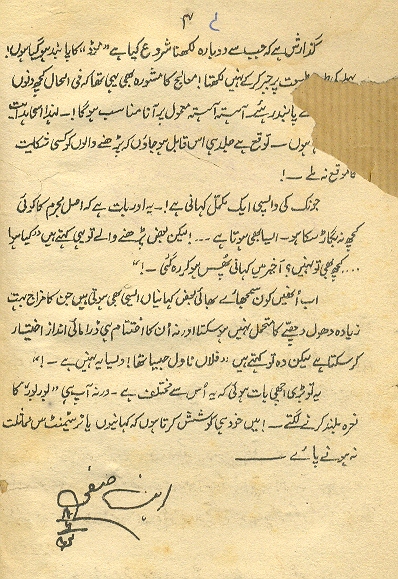 ۴
گذارش ہے کہ جب سے دوبارہ لکھنا شروع کیا ہے "موڈ" کا پابند ہو گیا ہوں!
پہلے کی طرح طبیعت پر جبر کر کے نہیں لکھتا! معالج کا مشورہ بھی یہی تھا کہ فی الحال کچھ دنوں
کے پابند رہئے۔ آہستہ آہستہ معمول پر آنا مناسب ہو گا! ۔ لہٰذا
ہوں ۔ توقع ہے جلد ہی اس قابل ہو جاؤں کہ پڑھنے والوں کو کسی شکایت
کا موقع نہ ملے ۔ !
جوزف کی واپسی ایک مکمل کہانی ہے! ۔ یہ اور بات ہے کہ اصل مجرم کا کوئی
کچھ نہ بگاڑ سکا ہو ۔ ایسا بھی ہوتا ہے ۔۔۔! لیکن بعض پڑھنے والے تو یہی کہتے ہیں "کیا ہوا
.... کچھ بھی تو نہیں؟ آخیر میں کہانی پھس ہو کر رہ گئی ۔ !"
اب اُنھیں کون سمجھائے بھائی بعض کہانیاں ایسی بھی ہوتی ہیں جن کا مزاج بہت
زیادہ دھول دھپے کا متحمل نہیں ہو سکتا ورنہ اُن کا اختتام ہی ڈرامائی انداز اختیار
کر سکتا ہے لیکن وہ تو کہتے ہیں "فلاں ناول جیسا تھا! ویسا یہ نہیں ہے ۔ !"
یہ تو بڑی اچھی بات ہوئی کہ یہ اُس سے مختلف ہے ۔ ورنہ آپ ہی "بور بور" کا
نعرہ بلند کرنے لگتے ۔ ! میں خود ہی کوشش کرتا ہوں کہ کہانیوں یا ٹریٹمنٹ میں مماثلت
نہ ہونے پائے ۔
ابن صفی